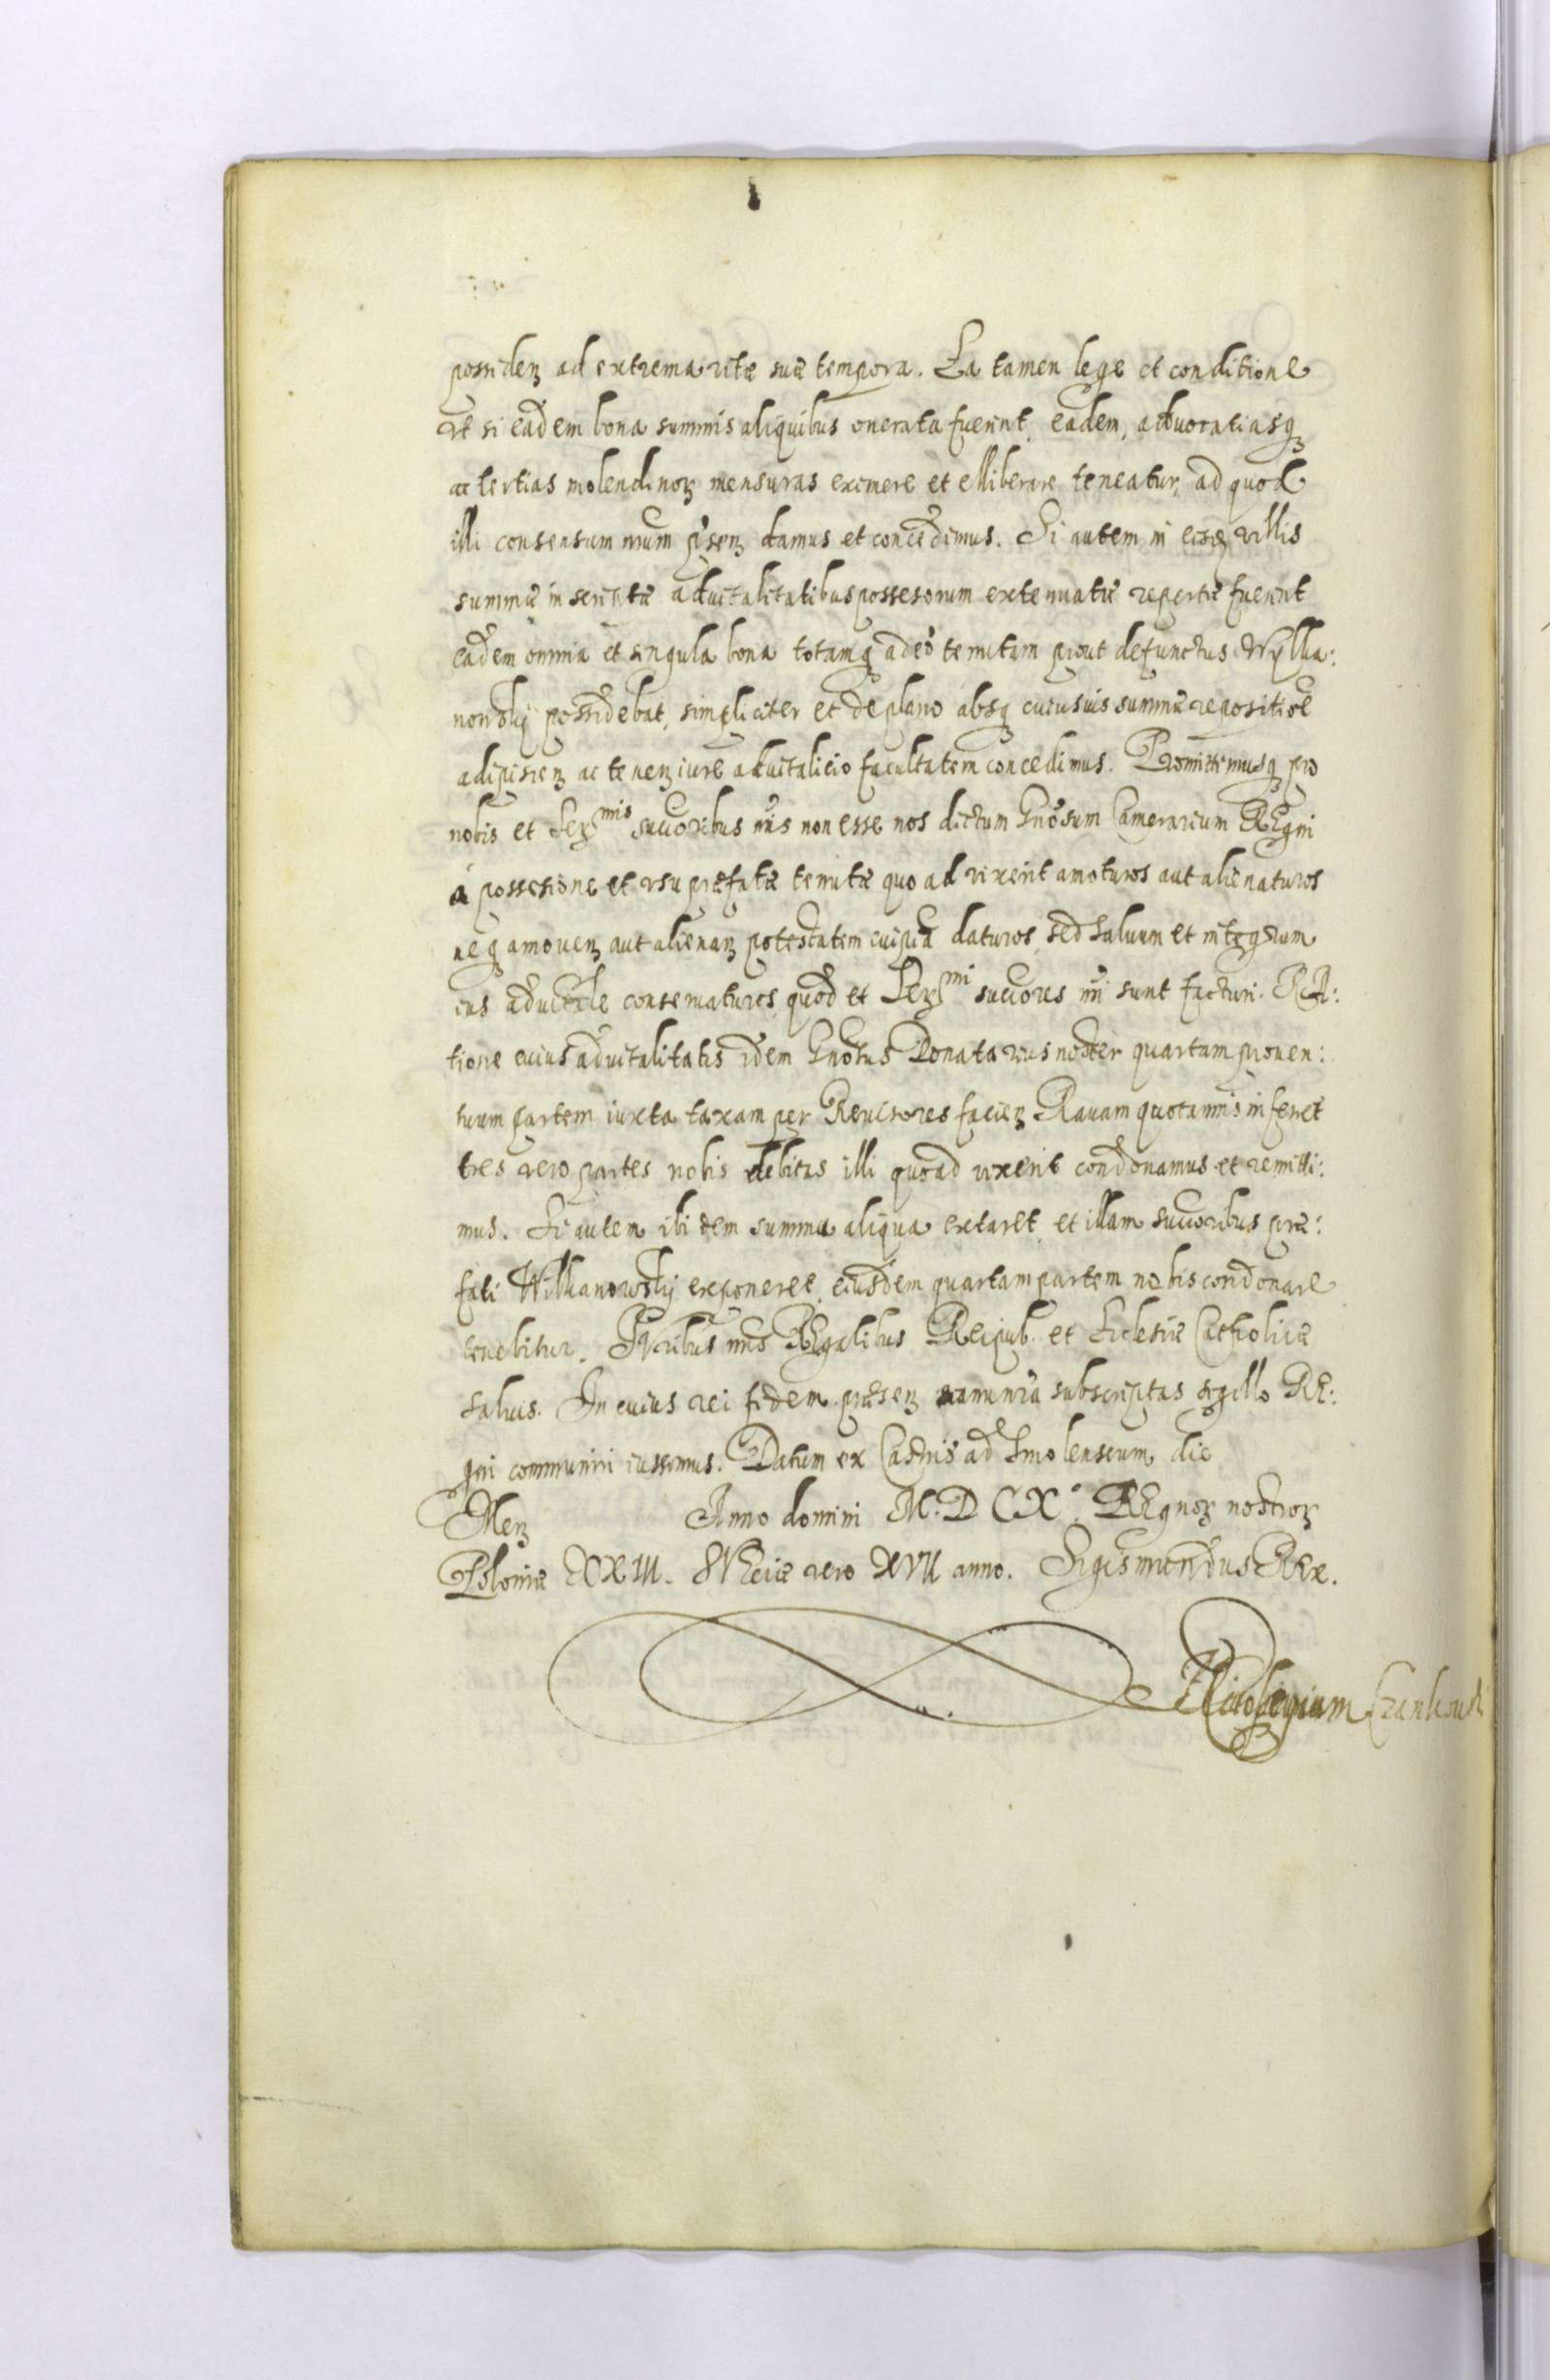 possiden ad extrema vitæ suæ tempora. Ea tamen lege et conditione
vt si eadem bona summis aliquibus onerata fuerint, eadem, advocatiasq
ac tertias molendinor mensuras eximere et elliberare teneatur, ad quod
illi consensum nrum pnsen damus et concedimus. Si autem in eisd villis
summæ inscriptæ aduitalitatibus possesorum extenuatæ repertæ fuerint
eadem omnia et singula bona totamq adeo tenutam prout defunctus Wylka:
nowskij possidebat, simpliciter et de plano absq cuiusuis summæ repositioe
adipiscen ac tenen iure aduitalitio facultatem concedimus. Promittimusq pro
nobis et Sermis succoribus nris non esse nos dictum Gnosum Camerarium REgni
á possesione et vsu præfatæ tenutæ quo ad vixerit amoturos aut alienaturos
neq amouen aut alienan potestatem cuipiā daturos, sed saluum et integrum
ius aduitale conseruaturos, quod et Sermi succores nri sunt facturi. RA:
tione cuius aduitalitatis idem Gnosus Donatarius noster quartam prouen:
tuum partem iuxta taxam per Reuisores facien Rauam quotannis inferet
tres vero partes nobis debitas illi quoad vixerit condonamus et remitti:
mus. Si autem ibidem summa aliqua extaret, et illam succoribus præ:
fati Wilkanowskij exponeret, eiusdem quartam partem nobis condonare
tenebitur. Iuribus nris REgalibus Reipub. et Eclesiæ Catholicæ
saluis. In cuius rei fidem præsen manu nra subscriptas sigillo RE:
gni communiri iussimus. Datum ex Castris ad Smolenscum die
Men Anno domini M. D C X. REgnor nostror
Poloniæ XXIII. SVeciæ vero XVII anno. Sigismundus REx.